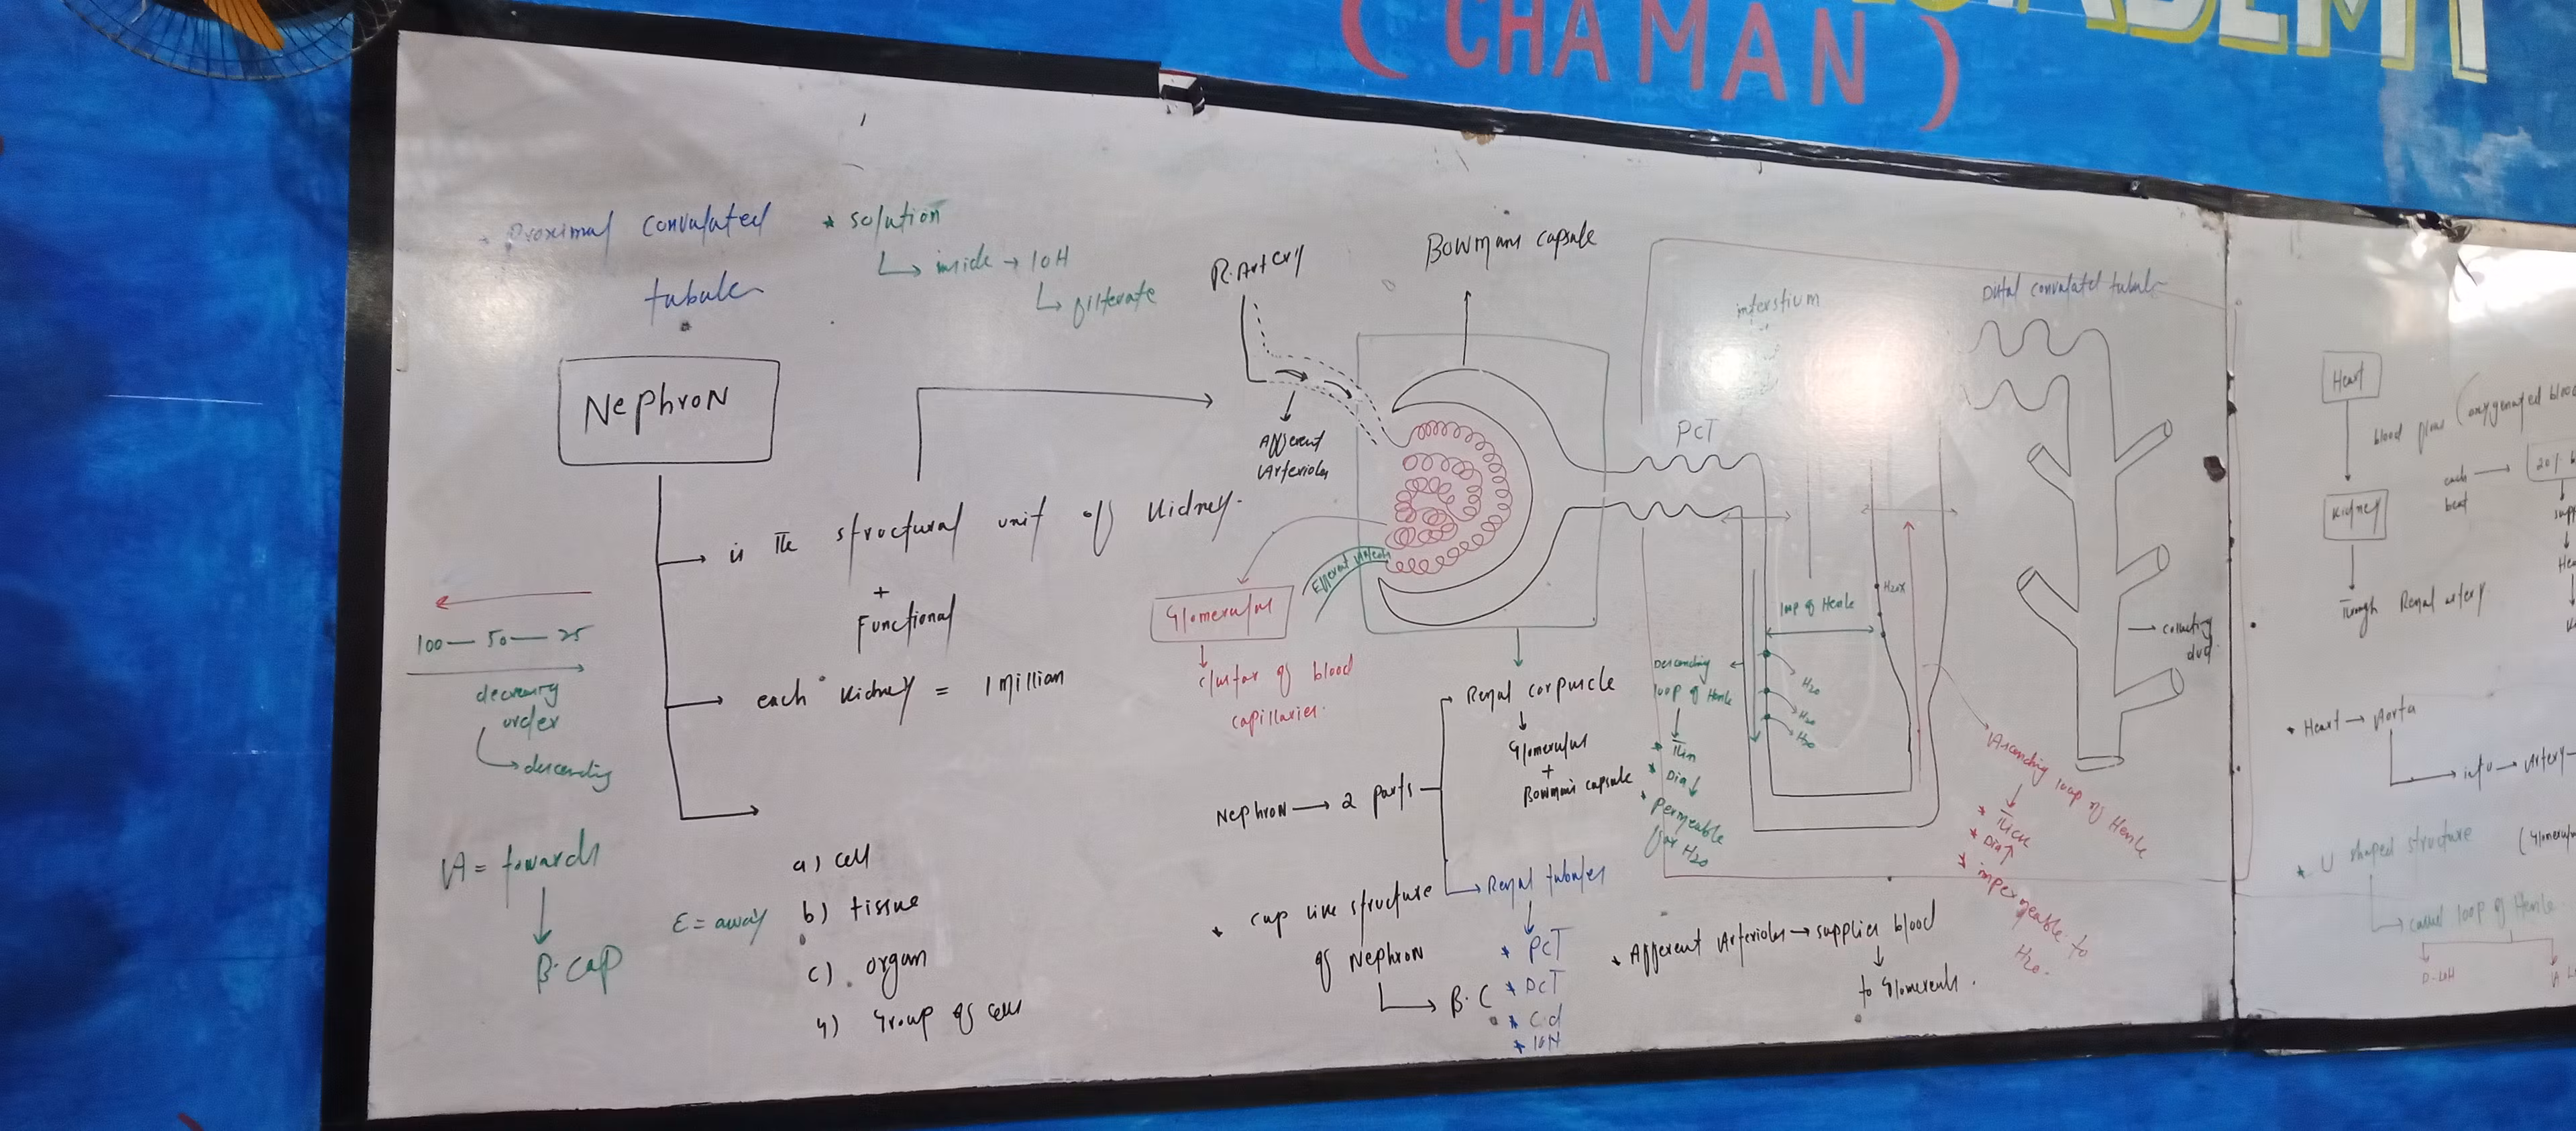 (CHAMAN)
Proximal convulated
tubule
* solution
inside → 10H
filterate
R.Artery
Bowmans capsule
interstium
Distal convulated tubule
Nephron
Afferent
Arterioles
PCT
is the structural unit of kidney.
+
Functional
each kidney = 1 millian
Efferent
Glomerulus
cluster of blood
capillaries.
100 — 50 — 25
decreasing
order
descending
A = towards
B.cap
E = away
a) cell
b) tissue
c) organ
4) Group of cells
Nephron → 2 parts
Renal corpuscle
Glomerulus
+
Bowman's capsule
Renal tubules
* PCT
* DCT
* Cd
* 10H
* cup like structure
of Nephron
B.C
loop of Henle
Descending
loop of Henle
* Thin
* Dia↓
* permeable
for H2O
H2O
H2O
H2O
Ascending loop of Henle
* Thick
* Dia↑
* impermeable to
H2O.
collecting
duct
* Afferent Arterioles → supplies blood
to Glomerulus.
Heart
blood flow (oxygenated blood
each
beat
20%
Kidney
Through Renal artery
* Heart → Aorta
into → Artery
* U shaped structure
called loop of Henle
D-LOH